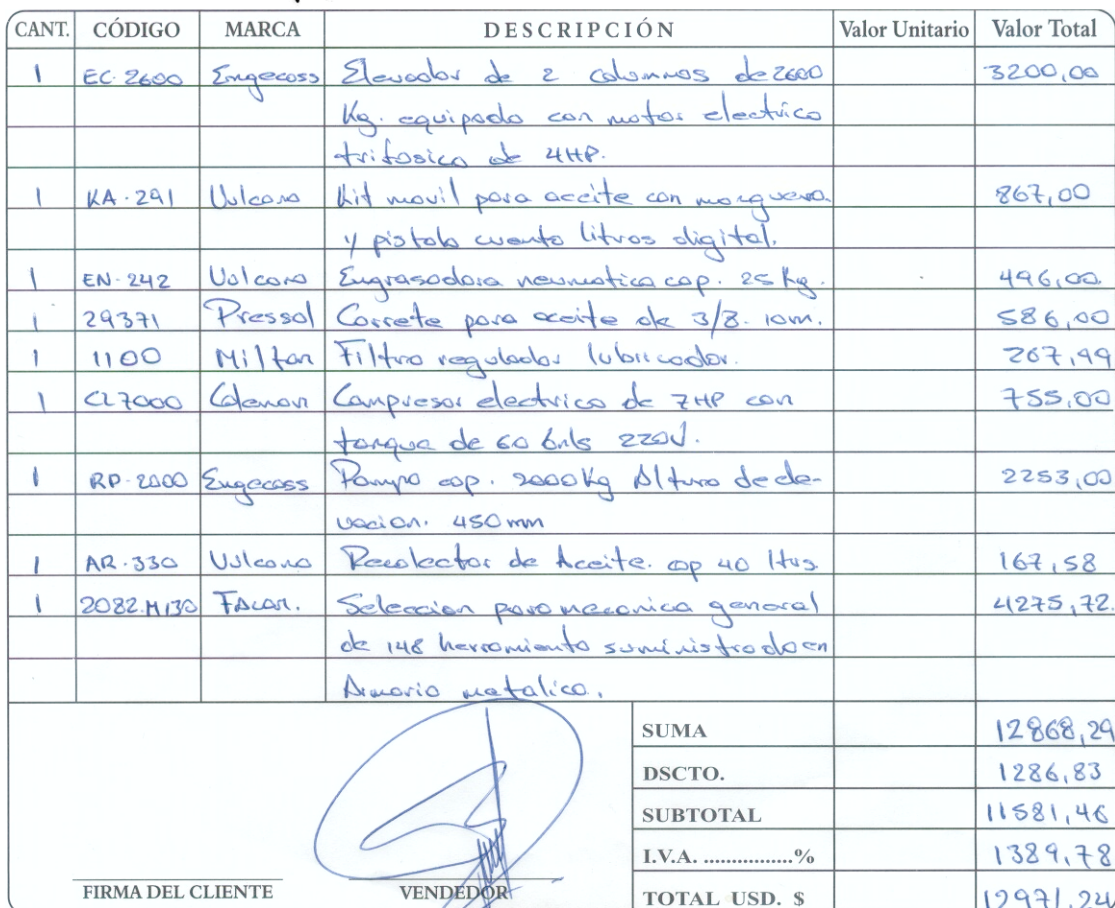 CANT. CÓDIGO MARCA DESCRIPCIÓN Valor Unitario Valor Total
1 EC-2600 Engecass Elevador de 2 columnas de 2600 3200,00
Kg. equipado con motor electrico
trifasico de 4HP.
1 KA-291 Vulcano Kit movil para aceite con manguera. 867,00
y pistola cuenta litros digital.
1 EN-242 Vulcano Engrasadora neumatica cap. 25 kg. 496,00
1 29371 Pressol Carrete para aceite de 3/8. 10m. 586,00
1 1100 Milton Filtro regulador lubricador. 267,99
1 CL7000 Coleman Compresor electrico de 7HP con 755,00
tanque de 60 Gnls 220V.
1 RP-2000 Engecass Rampa cap. 2000Kg Altura de ele- 2253,00
vacion. 450mm
1 AR-330 Vulcano Recolector de Aceite. cap 40 ltrs. 167,58
1 2082.M130 FACOM. Seleccion para mecanica general 4275,72
de 148 herramienta suministrado en
Armario metalico.
SUMA 12868,29
DSCTO. 1286,83
SUBTOTAL 11581,46
I.V.A. ................% 1389,78
FIRMA DEL CLIENTE VENDEDOR TOTAL USD. $ 12971,24